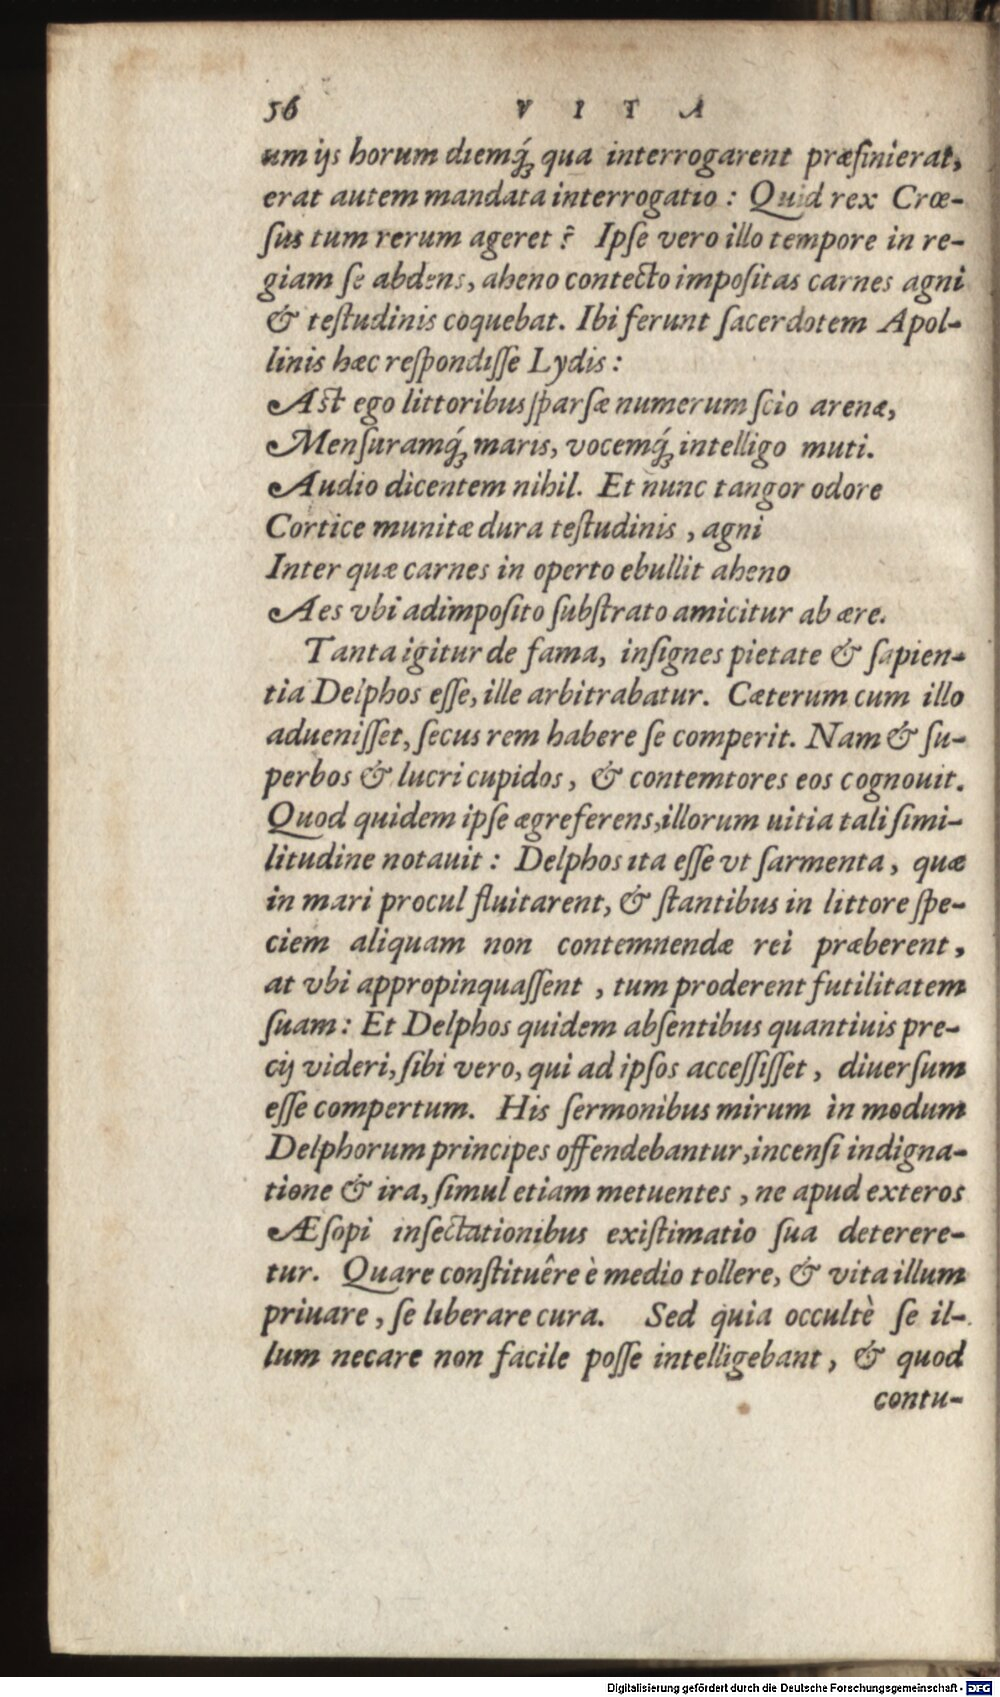 56 VITA
um ijs horum diemq́ꝫ qua interrogarent præfinierat,
erat autem mandata interrogatio: Quid rex Crœ-
ſus tum rerum ageret? Ipſe vero illo tempore in re-
giam ſe abdens, aheno contecto impoſitas carnes agni
& teſtudinis coquebat. Ibi ferunt ſacerdotem Apol-
linis hæc reſpondiſſe Lydis:
Aſt ego littoribus ſparſæ numerum ſcio arenæ,
Menſuramq́ꝫ maris, vocemq́ꝫ intelligo muti.
Audio dicentem nihil. Et nunc tangor odore
Cortice munitæ dura teſtudinis, agni
Inter quæ carnes in operto ebullit aheno
Aes vbi adimpoſito ſubſtrato amicitur ab ære.
Tanta igitur de fama, inſignes pietate & ſapien-
tia Delphos eſſe, ille arbitrabatur. Cæterum cum illo
adueniſſet, ſecus rem habere ſe comperit. Nam & ſu-
perbos & lucri cupidos, & contemtores eos cognouit.
Quod quidem ipſe ægre ferens, illorum uitia tali ſimi-
litudine notauit: Delphos ita eſſe vt ſarmenta, quæ
in mari procul fluitarent, & ſtantibus in littore ſpe-
ciem aliquam non contemnendæ rei præberent,
at vbi appropinquaſſent, tum proderent futilitatem
ſuam: Et Delphos quidem abſentibus quantiuis pre-
cij videri, ſibi vero, qui ad ipſos acceſſiſſet, diuerſum
eſſe compertum. His ſermonibus mirum in modum
Delphorum principes offendebantur, incenſi indigna-
tione & ira, ſimul etiam metuentes, ne apud exteros
Æſopi inſectationibus exiſtimatio ſua deterere-
tur. Quare conſtituêre è medio tollere, & vita illum
priuare, ſe liberare cura. Sed quia occultè ſe il-
lum necare non facile poſſe intelligebant, & quod
contu-
Digitalisierung gefördert durch die Deutsche Forschungsgemeinschaft - DFG